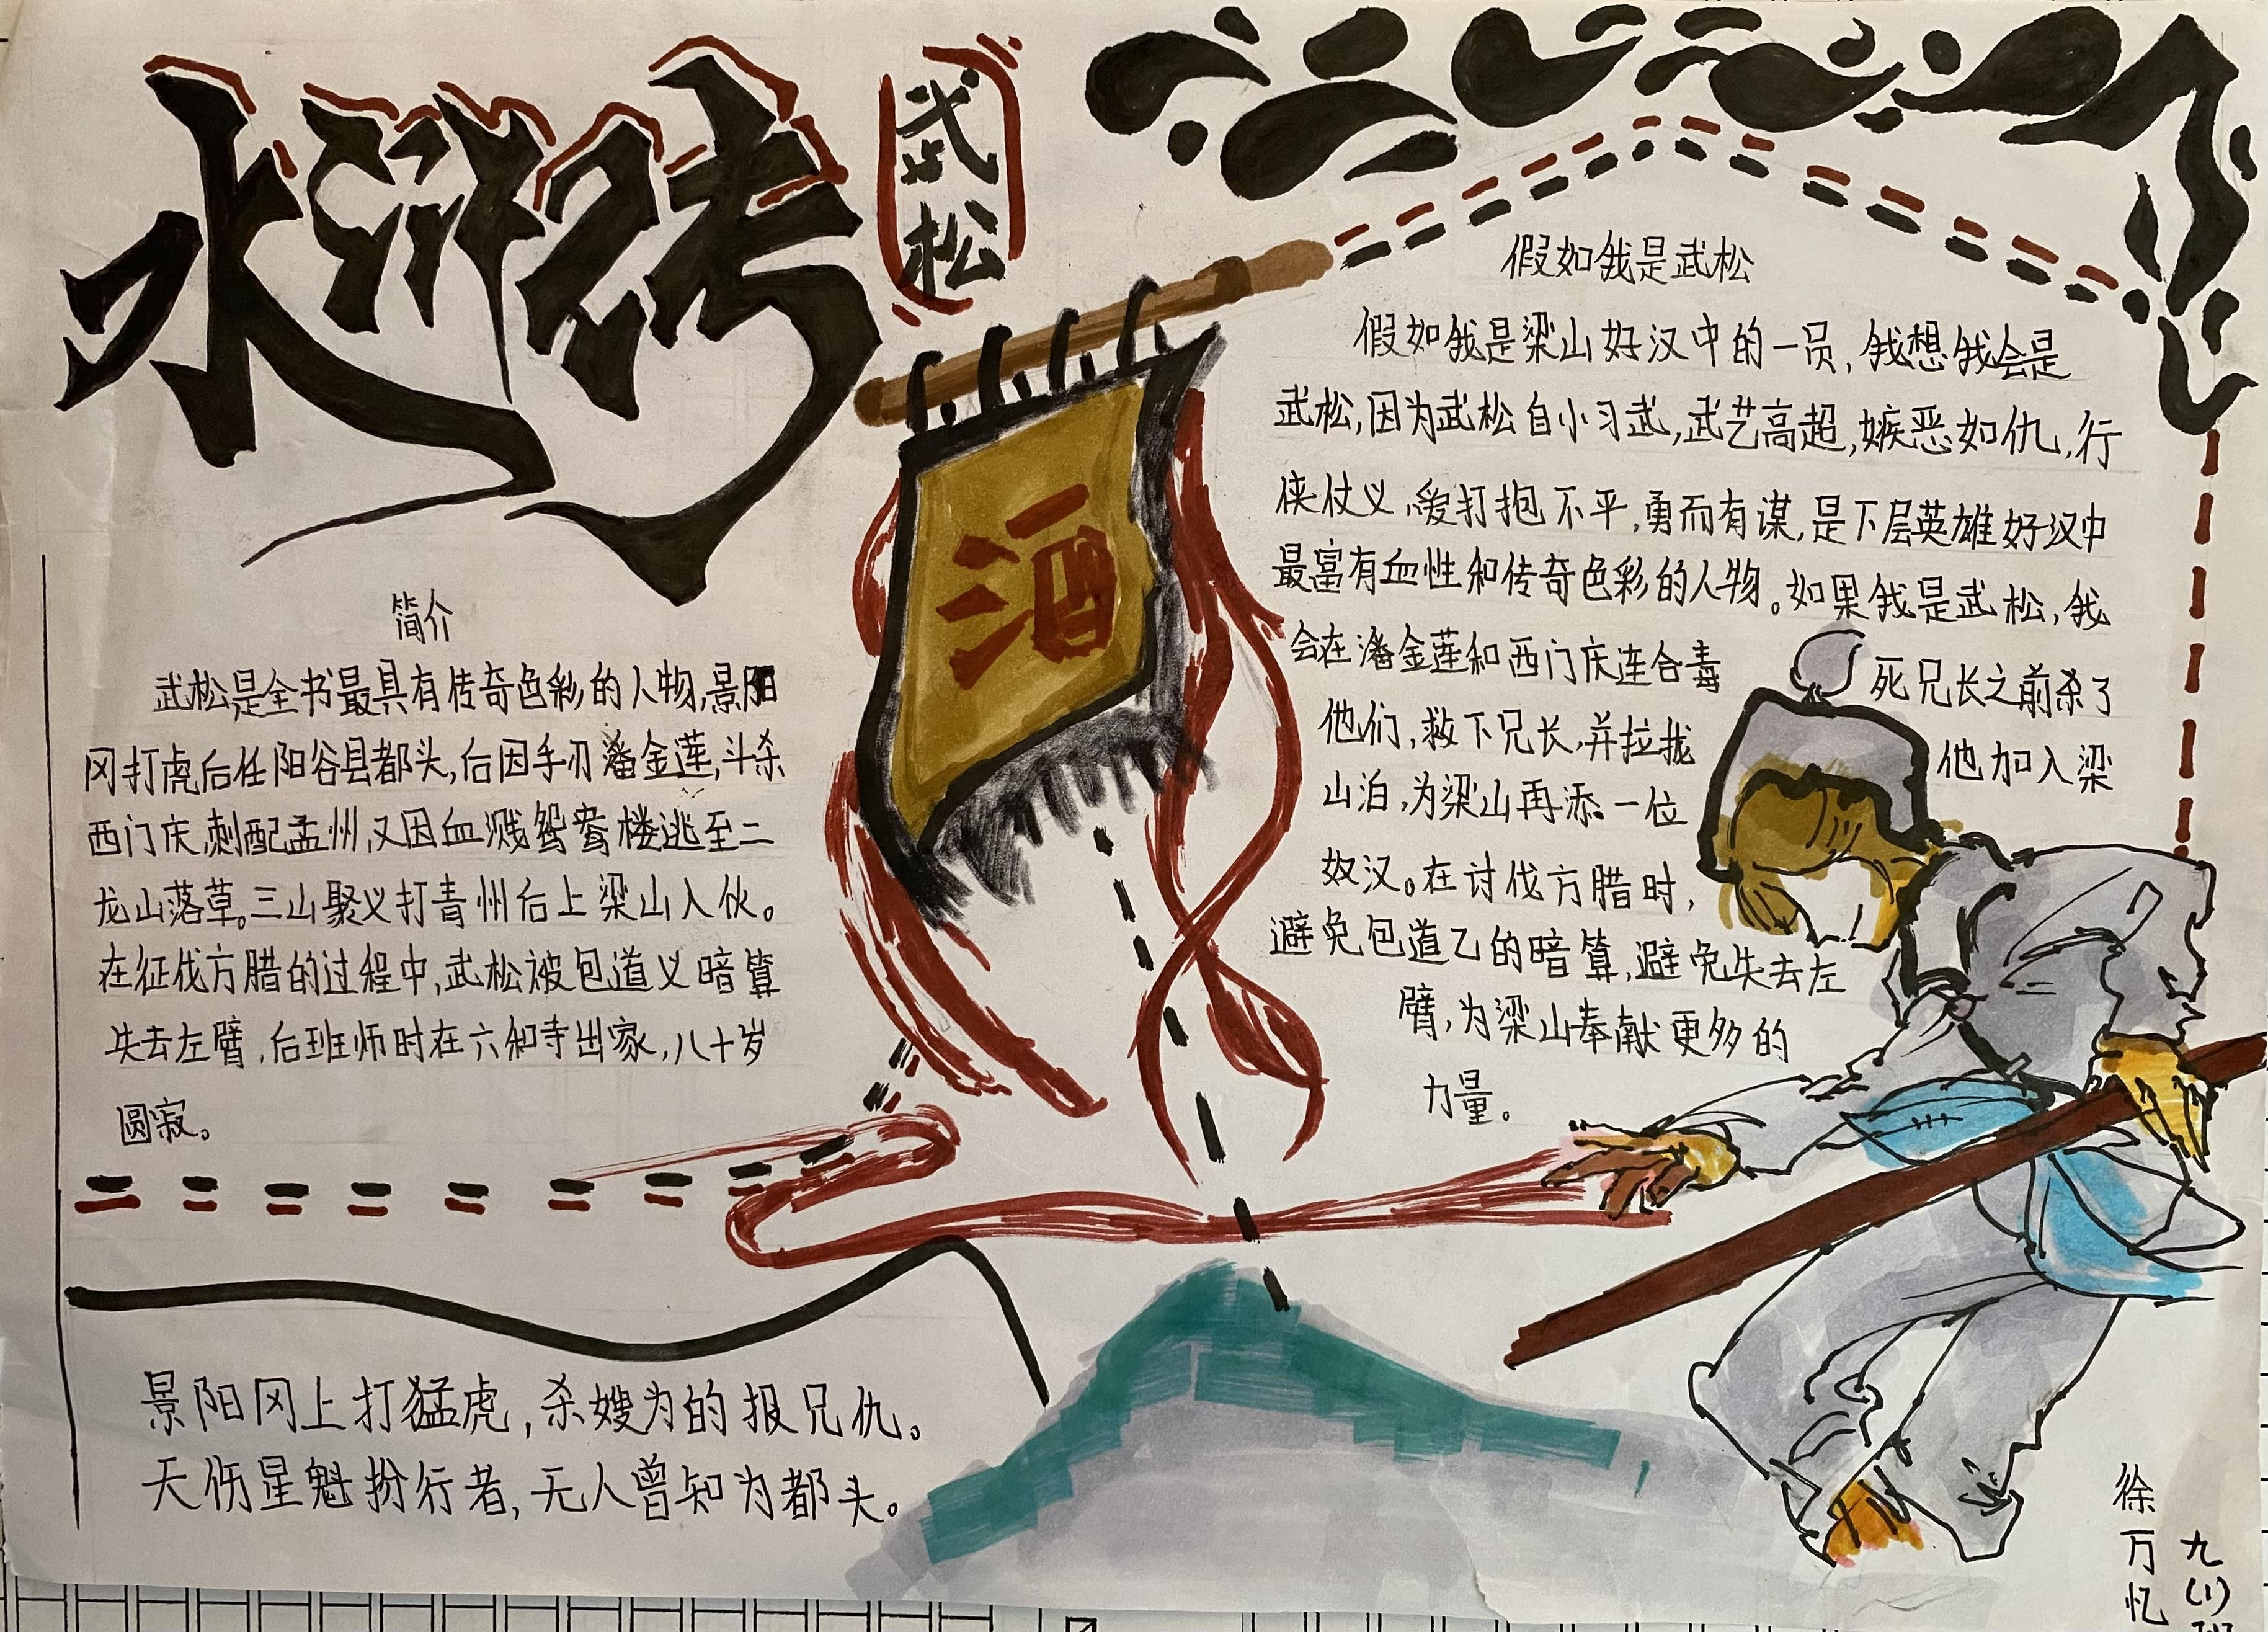 水浒传
武松
简介
武松是全书最具有传奇色彩的人物,景阳
冈打虎后任阳谷县都头,后因手刃潘金莲,斗杀
西门庆,刺配孟州,又因血溅鸳鸯楼逃至二
龙山落草。三山聚义打青州后上梁山入伙。
在征伐方腊的过程中,武松被包道义暗算
失去左臂,后班师时在六和寺出家,八十岁
圆寂。
景阳冈上打猛虎,杀嫂为的报兄仇。
天伤星魁扮行者,无人曾知为都头。
酒
假如我是武松
假如我是梁山好汉中的一员,我想我会是
武松,因为武松自小习武,武艺高超,嫉恶如仇,行
侠仗义,爱打抱不平,勇而有谋,是下层英雄好汉中
最富有血性和传奇色彩的人物。如果我是武松,我
会在潘金莲和西门庆连合毒死兄长之前杀了
他们,救下兄长,并拉拢他加入梁
山泊,为梁山再添一位
好汉。在讨伐方腊时,
避免包道乙的暗算,避免失去左
臂,为梁山奉献更多的
力量。
九(1)班
徐万忆